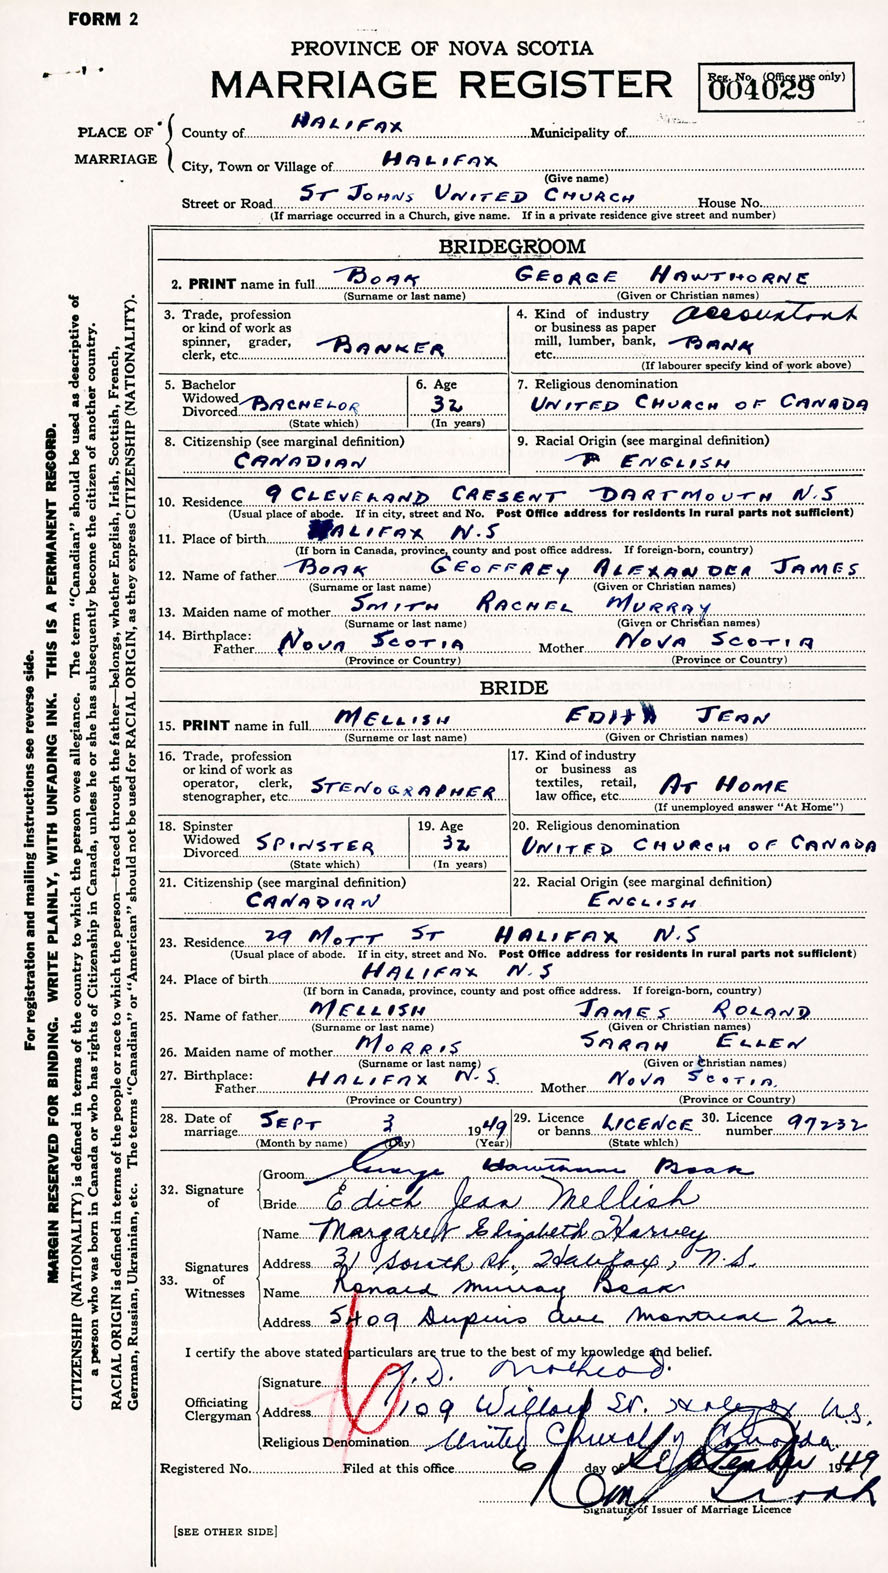 FORM 2
PROVINCE OF NOVA SCOTIA
MARRIAGE REGISTER
Reg. No. (Office use only)
004029
PLACE OF MARRIAGE
County of HALIFAX Municipality of
City, Town or Village of HALIFAX
(Give name)
Street or Road ST JOHNS UNITED CHURCH House No.
(If marriage occurred in a Church, give name. If in a private residence give street and number)
BRIDEGROOM
2. PRINT name in full BOAK GEORGE HAWTHORNE
(Surname or last name) (Given or Christian names)
3. Trade, profession or kind of work as spinner, grader, clerk, etc. BANKER
4. Kind of industry or business as paper mill, lumber, bank, etc. accountant BANK
(If labourer specify kind of work above)
5. Bachelor Widowed Divorced BACHELOR
(State which)
6. Age 32
(In years)
7. Religious denomination
UNITED CHURCH OF CANADA
8. Citizenship (see marginal definition)
CANADIAN
9. Racial Origin (see marginal definition)
ENGLISH
10. Residence 9 CLEVELAND CRESENT DARTMOUTH N.S
(Usual place of abode. If in city, street and No. Post Office address for residents in rural parts not sufficient)
11. Place of birth HALIFAX N.S
(If born in Canada, province, county and post office address. If foreign-born, country)
12. Name of father BOAK GEOFFREY ALEXANDER JAMES
(Surname or last name) (Given or Christian names)
13. Maiden name of mother SMITH RACHEL MURRAY
(Surname or last name) (Given or Christian names)
14. Birthplace: Father NOVA SCOTIA Mother NOVA SCOTIA
(Province or Country) (Province or Country)
BRIDE
15. PRINT name in full MELLISH EDITH JEAN
(Surname or last name) (Given or Christian names)
16. Trade, profession or kind of work as operator, clerk, stenographer, etc. STENOGRAPHER
17. Kind of industry or business as textiles, retail, law office, etc. AT HOME
(If unemployed answer "At Home")
18. Spinster Widowed Divorced SPINSTER
(State which)
19. Age 32
(In years)
20. Religious denomination
UNITED CHURCH OF CANADA
21. Citizenship (see marginal definition)
CANADIAN
22. Racial Origin (see marginal definition)
ENGLISH
23. Residence 29 MOTT ST HALIFAX N.S
(Usual place of abode. If in city, street and No. Post Office address for residents in rural parts not sufficient)
24. Place of birth HALIFAX N.S
(If born in Canada, province, county and post office address. If foreign-born, country)
25. Name of father MELLISH JAMES ROLAND
(Surname or last name) (Given or Christian names)
26. Maiden name of mother MORRIS SARAH ELLEN
(Surname or last name) (Given or Christian names)
27. Birthplace: Father HALIFAX N.S. Mother NOVA SCOTIA.
(Province or Country) (Province or Country)
28. Date of marriage SEPT 3 1949
(Month by name) (Day) (Year)
29. Licence or banns LICENCE
(State which)
30. Licence number 97232
32. Signature of
Groom George Hawthorne Boak
Bride Edith Jean Mellish
33. Signatures of Witnesses
Name Margaret Elizabeth Harvey
Address 31 South St., Halifax, N.S.
Name Ronald Murray Boak
Address 5409 Dupuis Ave Montreal Que
I certify the above stated particulars are true to the best of my knowledge and belief.
Officiating Clergyman
Signature J. D.
Address 109 Willow St. Halifax N.S.
Religious Denomination United Church of Canada.
Registered No. Filed at this office 6 day of September 1949
Signature of Issuer of Marriage Licence
[SEE OTHER SIDE]
For registration and mailing instructions see reverse side.
MARGIN RESERVED FOR BINDING. WRITE PLAINLY, WITH UNFADING INK. THIS IS A PERMANENT RECORD.
CITIZENSHIP (NATIONALITY) is defined in terms of the country to which the person owes allegiance. The term "Canadian" should be used as descriptive of
a person who was born in Canada or who has rights of Citizenship in Canada, unless he or she has subsequently become the citizen of another country.
RACIAL ORIGIN is defined in terms of the people or race to which the person—traced through the father—belongs, whether English, Irish, Scottish, French,
German, Russian, Ukrainian, etc. The terms "Canadian" or "American" should not be used for RACIAL ORIGIN, as they express CITIZENSHIP (NATIONALITY).